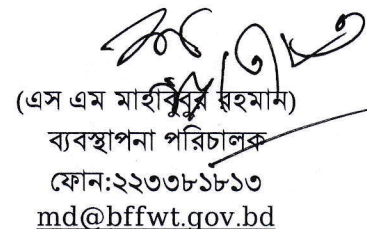 (এস এম মাহবুবুর রহমান)
ব্যবস্থাপনা পরিচালক
ফোন:২২৩৩৮১৮১৩
md@bffwt.gov.bd